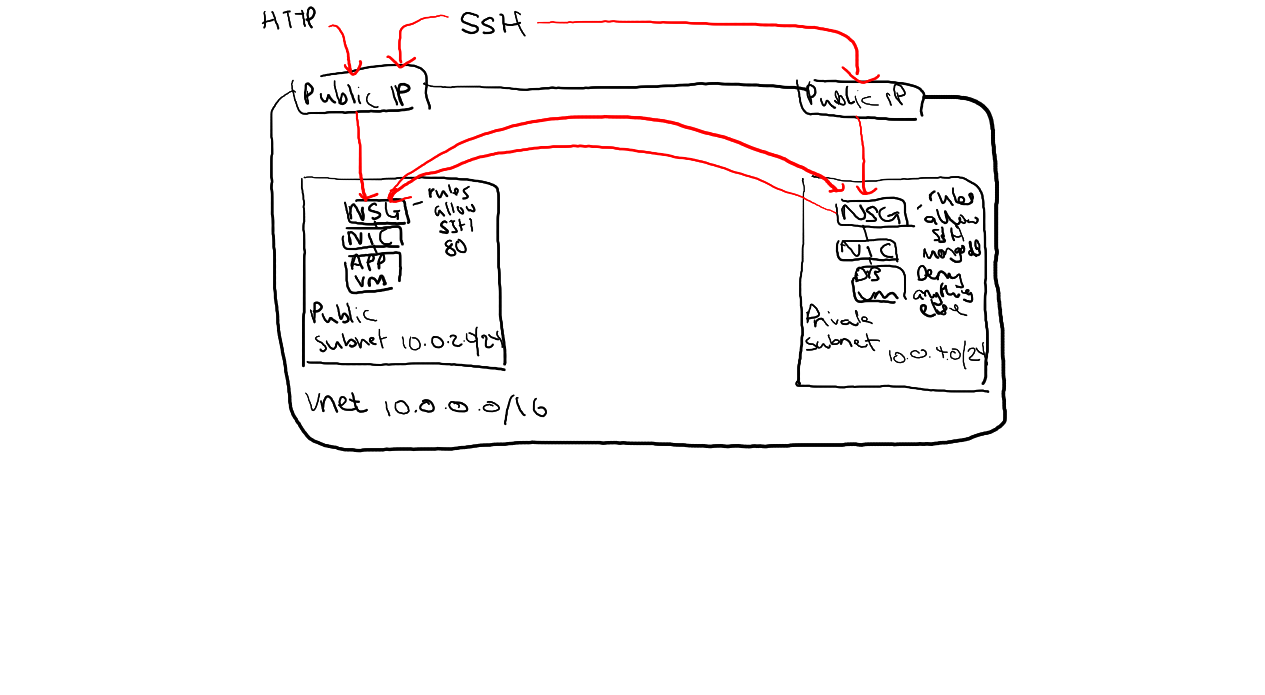 HTTP
SSH
Public IP
Public IP
NSG
- rules
allow
SSH
80
NIC
APP
VM
Public
subnet 10.0.2.0/24
NSG
- rules
allow
SSH
mongodB
Deny
anything
else
NIC
DB
vm
Private
subnet
10.0.4.0/24
Vnet 10.0.0.0/16